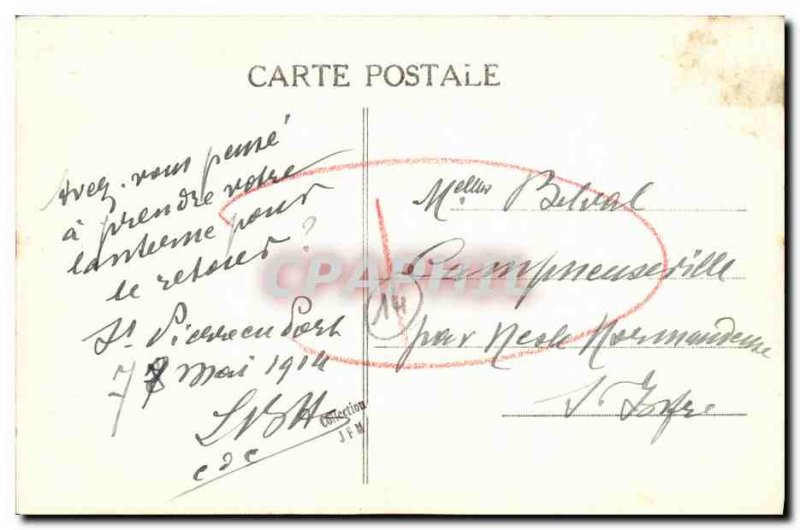 CARTE POSTALE
Avez-vous pensé
à prendre votre
lanterne pour
le retour?
St Pierre en Port
7 8 Mai 1914
Collection
J F M
Melles Belval
Campneuseville
par Normandeuse
S. Infre
14
CPAPHIL